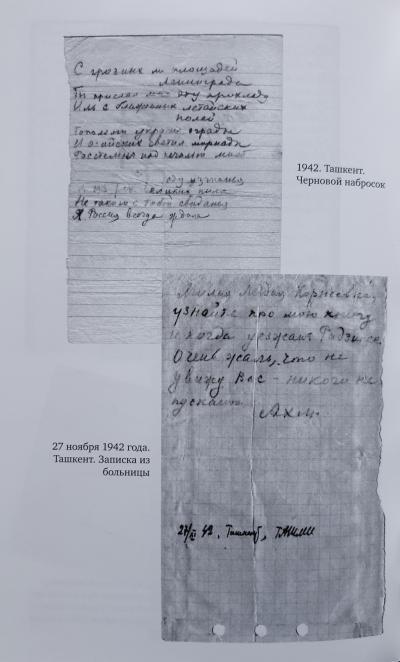 С грозных ли площадей
Ленинграда
Иль с блаженных летейских
полей
Ты прислал мне прохладу
Тополями украсил ограды
И азийских светил мириады
Расстелил над печалью моей
Не такого с тобой свиданья
Я Россия всегда ждала
1942. Ташкент.
Черновой набросок
Милая Лидия Корнеевна,
узнайте про мою книгу
и когда уезжает
Очень жаль, что не
увижу Вас – никого не
пускают.
Ахм.
27 ноября 1942 года.
Ташкент. Записка из
больницы
27/XI 42, Ташкент, ТАШМИ